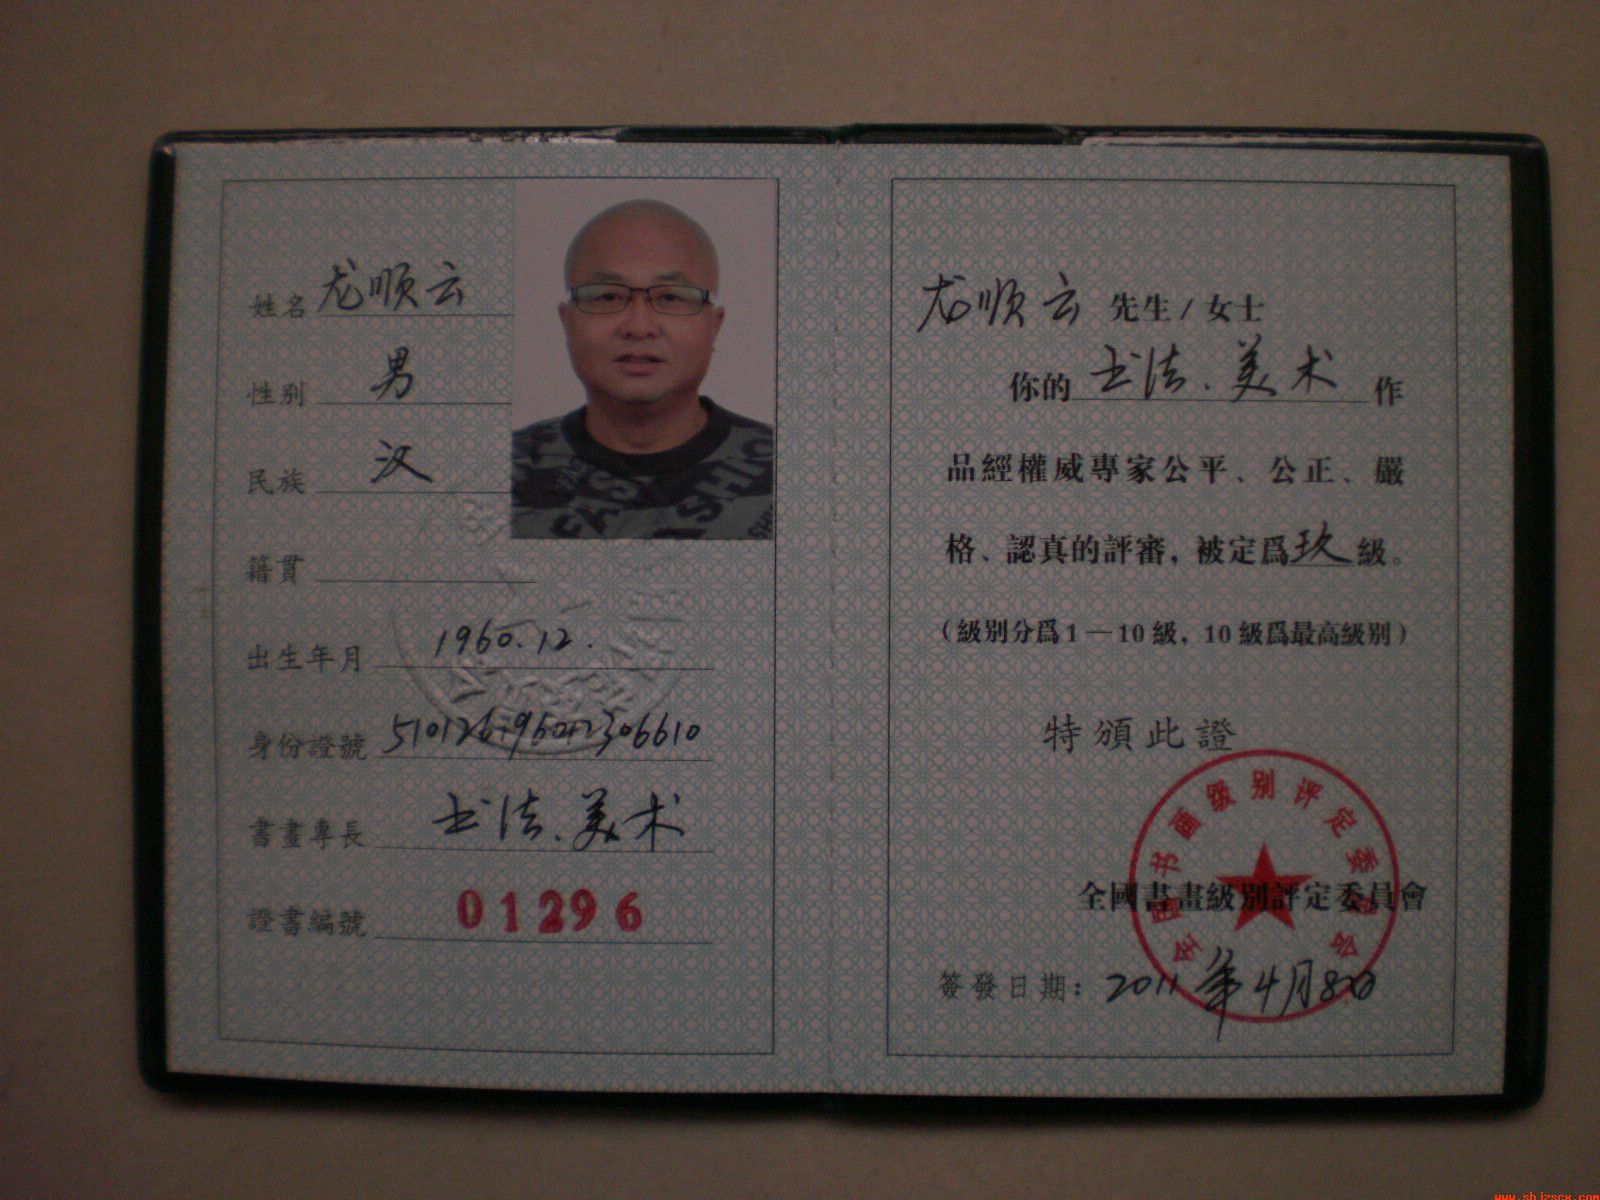 姓名 龙顺云
性别 男
民族 汉
籍貫
出生年月 1960.12.
身份證號 510126196012306610
書畫專長 书法.美术
證書編號 01296
龙顺云 先生/女士
你的 书法.美术 作
品經權威專家公平、公正、嚴
格、認真的評審，被定爲玖級。
（級别分爲1—10級，10級爲最高級别）
特頒此證
全國書畫級别評定委員會
全国书画级别评定委员会
簽發日期：2011年4月8日